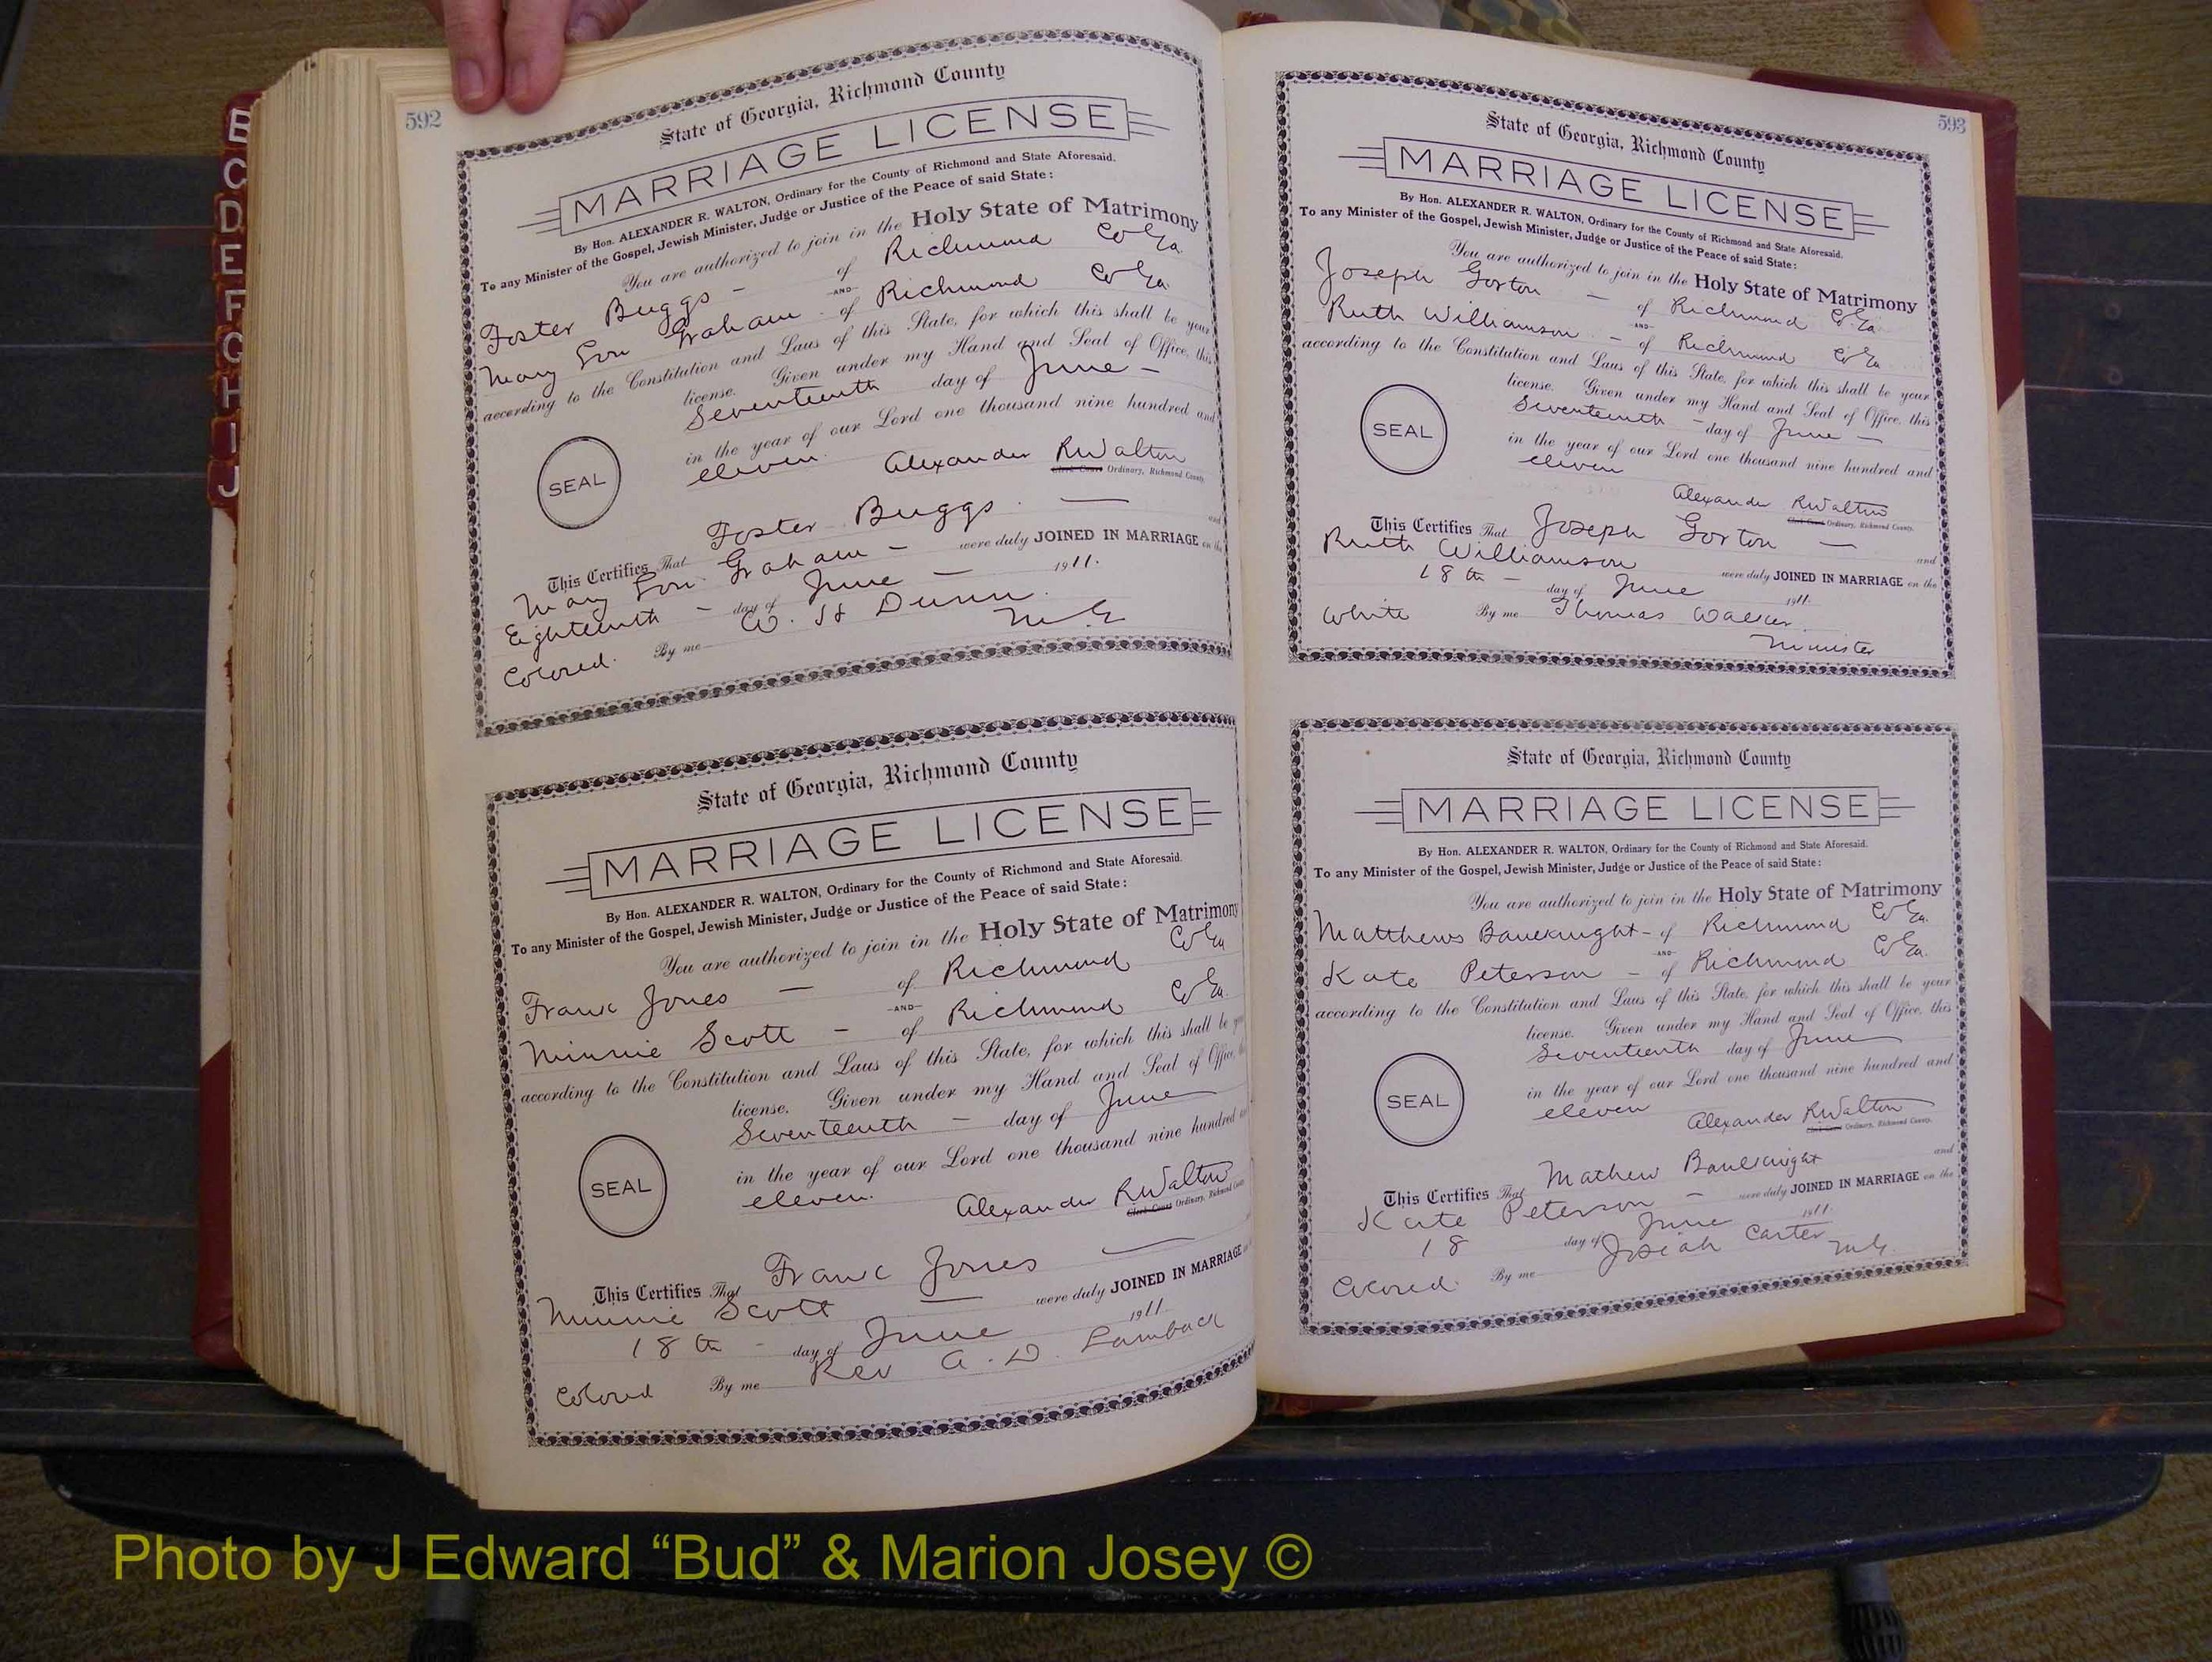 B
C
D
E
F
G
H
I
J
592
State of Georgia, Richmond County
MARRIAGE LICENSE
By Hon. ALEXANDER R. WALTON, Ordinary for the County of Richmond and State Aforesaid.
To any Minister of the Gospel, Jewish Minister, Judge or Justice of the Peace of said State:
You are authorized to join in the Holy State of Matrimony
Foster Buggs - of Richmond Co Ga
-AND-
Mary Lou Graham - of Richmond Co Ga.
according to the Constitution and Laws of this State, for which this shall be your
license. Given under my Hand and Seal of Office, this
Seventeenth day of June -
in the year of our Lord one thousand nine hundred and
eleven. Alexander R Walton
SEAL
Clerk Court Ordinary, Richmond County
This Certifies That Foster Buggs - and
Mary Lou Graham - were duly JOINED IN MARRIAGE on the
Eighteenth - day of June - 1911.
Colored. By me W. H Dunn
M. G
State of Georgia, Richmond County
MARRIAGE LICENSE
By Hon. ALEXANDER R. WALTON, Ordinary for the County of Richmond and State Aforesaid.
To any Minister of the Gospel, Jewish Minister, Judge or Justice of the Peace of said State:
You are authorized to join in the Holy State of Matrimony
Frank Jones - of Richmond Co Ga
-AND-
Minnie Scott - of Richmond Co Ga.
according to the Constitution and Laws of this State, for which this shall be
license. Given under my Hand and Seal of Office,
Seventeenth - day of June
in the year of our Lord one thousand nine hundred
eleven. Alexander R Walton
SEAL
Clerk Court Ordinary, Richmond County
This Certifies That Frank Jones -
Minnie Scott - were duly JOINED IN MARRIAGE
18th - day of June 1911.
Colored By me Rev A. D. Lamback
593
State of Georgia, Richmond County
MARRIAGE LICENSE
By Hon. ALEXANDER R. WALTON, Ordinary for the County of Richmond and State Aforesaid.
To any Minister of the Gospel, Jewish Minister, Judge or Justice of the Peace of said State:
You are authorized to join in the Holy State of Matrimony
Joseph Gorton - of Richmond Co Ga.
-AND-
Ruth Williamson - of Richmond Co Ga
according to the Constitution and Laws of this State, for which this shall be your
license. Given under my Hand and Seal of Office, this
Seventeenth - day of June -
in the year of our Lord one thousand nine hundred and
eleven
SEAL
Alexander R Walton
Clerk Court Ordinary, Richmond County.
This Certifies That Joseph Gorton - and
Ruth Williamson were duly JOINED IN MARRIAGE on the
18th - day of June 1911.
White By me Thomas Walker.
Minister
State of Georgia, Richmond County
MARRIAGE LICENSE
By Hon. ALEXANDER R. WALTON, Ordinary for the County of Richmond and State Aforesaid.
To any Minister of the Gospel, Jewish Minister, Judge or Justice of the Peace of said State:
You are authorized to join in the Holy State of Matrimony
Matthews Bouknight - of Richmond Co Ga.
-AND-
Kate Peterson - of Richmond Co Ga.
according to the Constitution and Laws of this State, for which this shall be your
license. Given under my Hand and Seal of Office, this
Seventeenth day of June
in the year of our Lord one thousand nine hundred and
eleven Alexander R Walton
SEAL
Clerk Court Ordinary, Richmond County.
This Certifies That Mathew Bouknight and
Kate Peterson - were duly JOINED IN MARRIAGE on the
18 day of June 1911.
Colored. By me Josiah Carter M.G.
Photo by J Edward “Bud” & Marion Josey ©